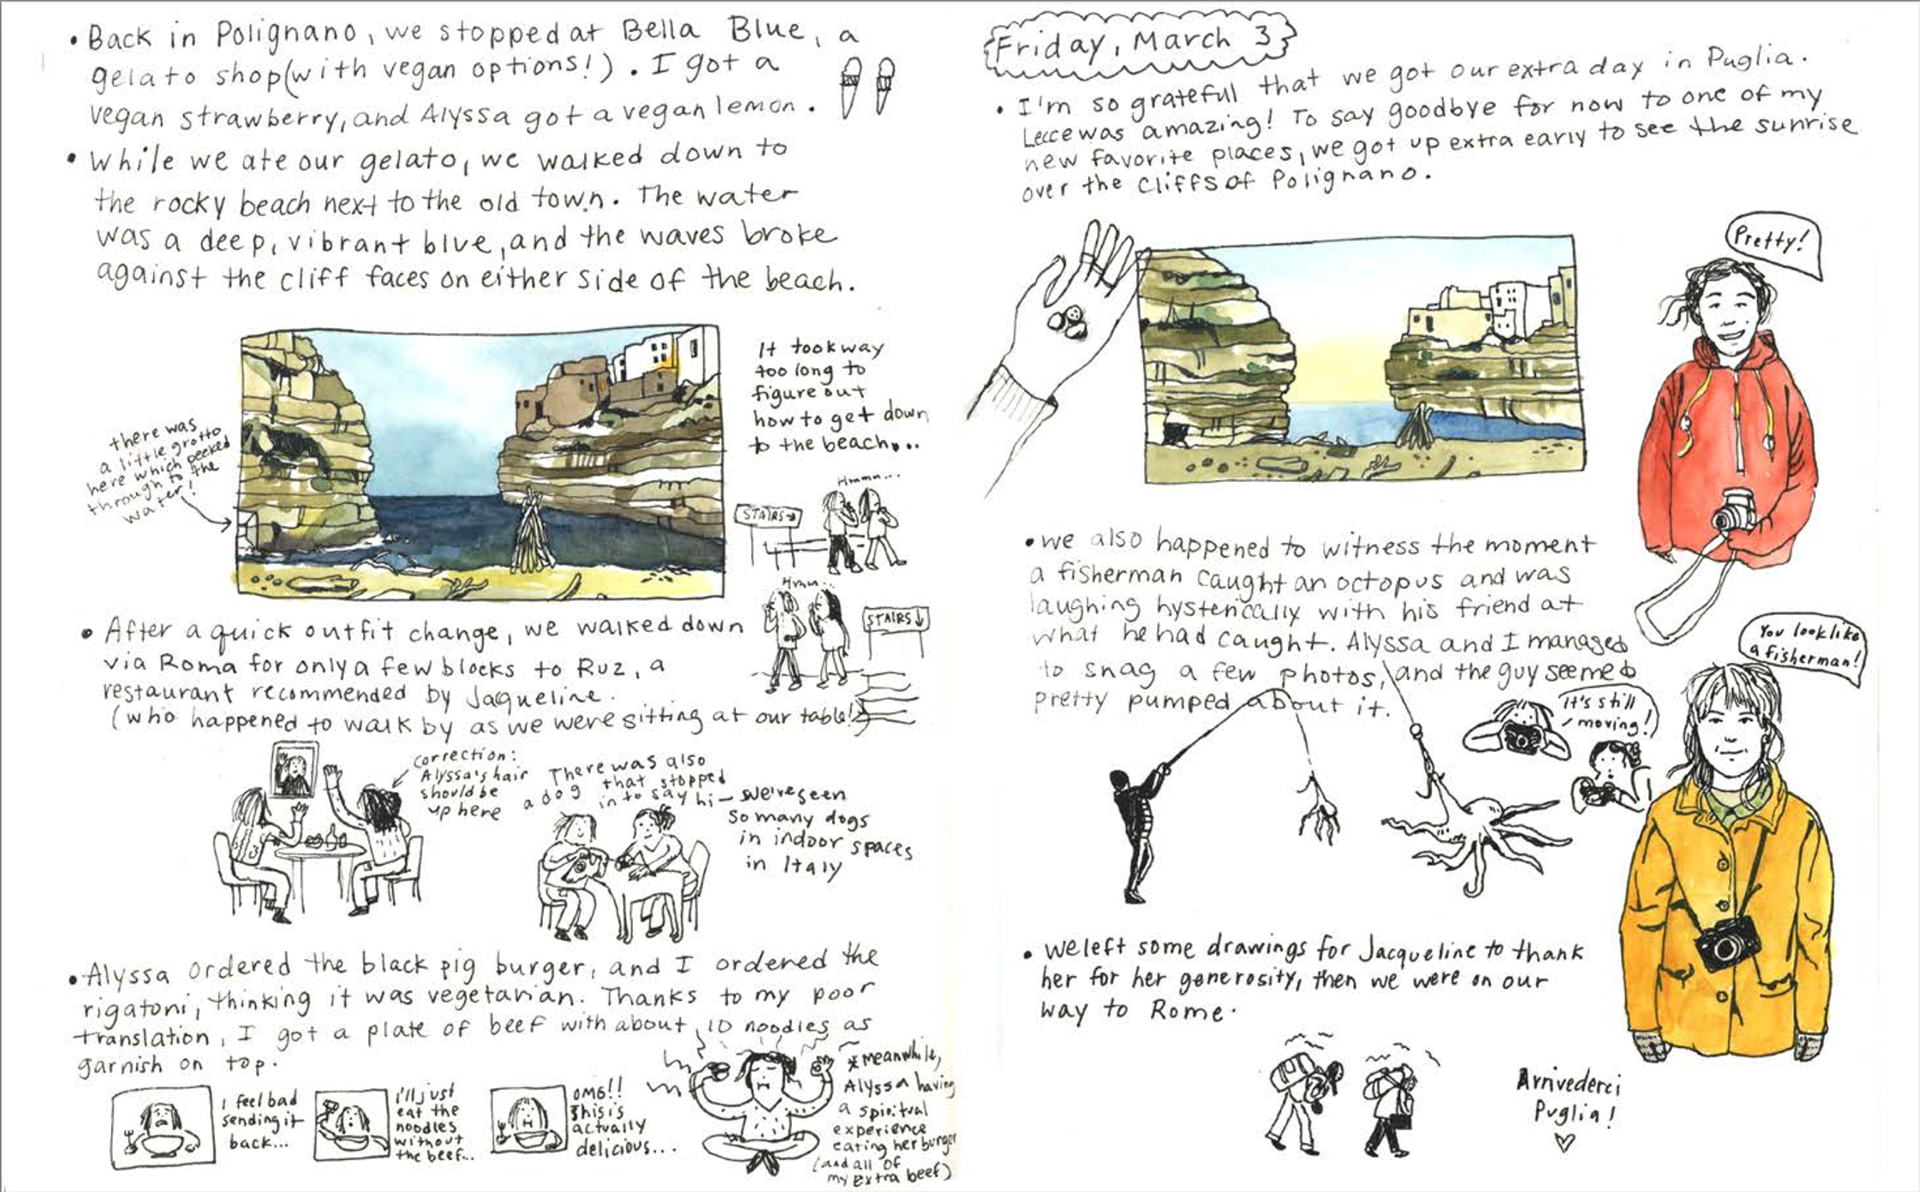 • Back in Polignano, we stopped at Bella Blue, a
gelato shop (with vegan options!). I got a
vegan strawberry, and Alyssa got a vegan lemon.
• While we ate our gelato, we walked down to
the rocky beach next to the old town. The water
was a deep, vibrant blue, and the waves broke
against the cliff faces on either side of the beach.
It took way
too long to
figure out
how to get down
to the beach...
there was
a little grotto
here which peeked
through to the
water!
Hmmn...
STAIRS→
Hmm..
STAIRS↓
• After a quick outfit change, we walked down
via Roma for only a few blocks to Ruz, a
restaurant recommended by Jaqueline.
(who happened to walk by as we were sitting at our table!)
correction:
Alyssa's hair
should be
up here
There was also
a dog that stopped
in to say hi – we've seen
so many dogs
in indoor spaces
in Italy
• Alyssa ordered the black pig burger, and I ordered the
rigatoni, thinking it was vegetarian. Thanks to my poor
translation, I got a plate of beef with about 10 noodles as
garnish on top.
I feel bad
sending it
back...
i'll just
eat the
noodles
without
the beef...
OMG!!
This is
actually
delicious...
*Meanwhile,
Alyssa having
a spiritual
experience
eating her burger
(and all of
my extra beef)
Friday, March 3
• I'm so grateful that we got our extra day in Puglia.
Lecce was amazing! To say goodbye for now to one of my
new favorite places, we got up extra early to see the sunrise
over the cliffs of Polignano.
Pretty!
• we also happened to witness the moment
a fisherman caught an octopus and was
laughing hysterically with his friend at
what he had caught. Alyssa and I managed
to snag a few photos, and the guy seemed
pretty pumped about it.
It's still
moving!
You look like
a fisherman!
• We left some drawings for Jacqueline to thank
her for her generosity, then we were on our
way to Rome.
Arrivederci
Puglia!
♡